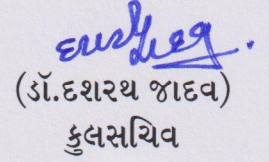 (ડૉ.દશરથ જાદવ)
કુલસચિવ